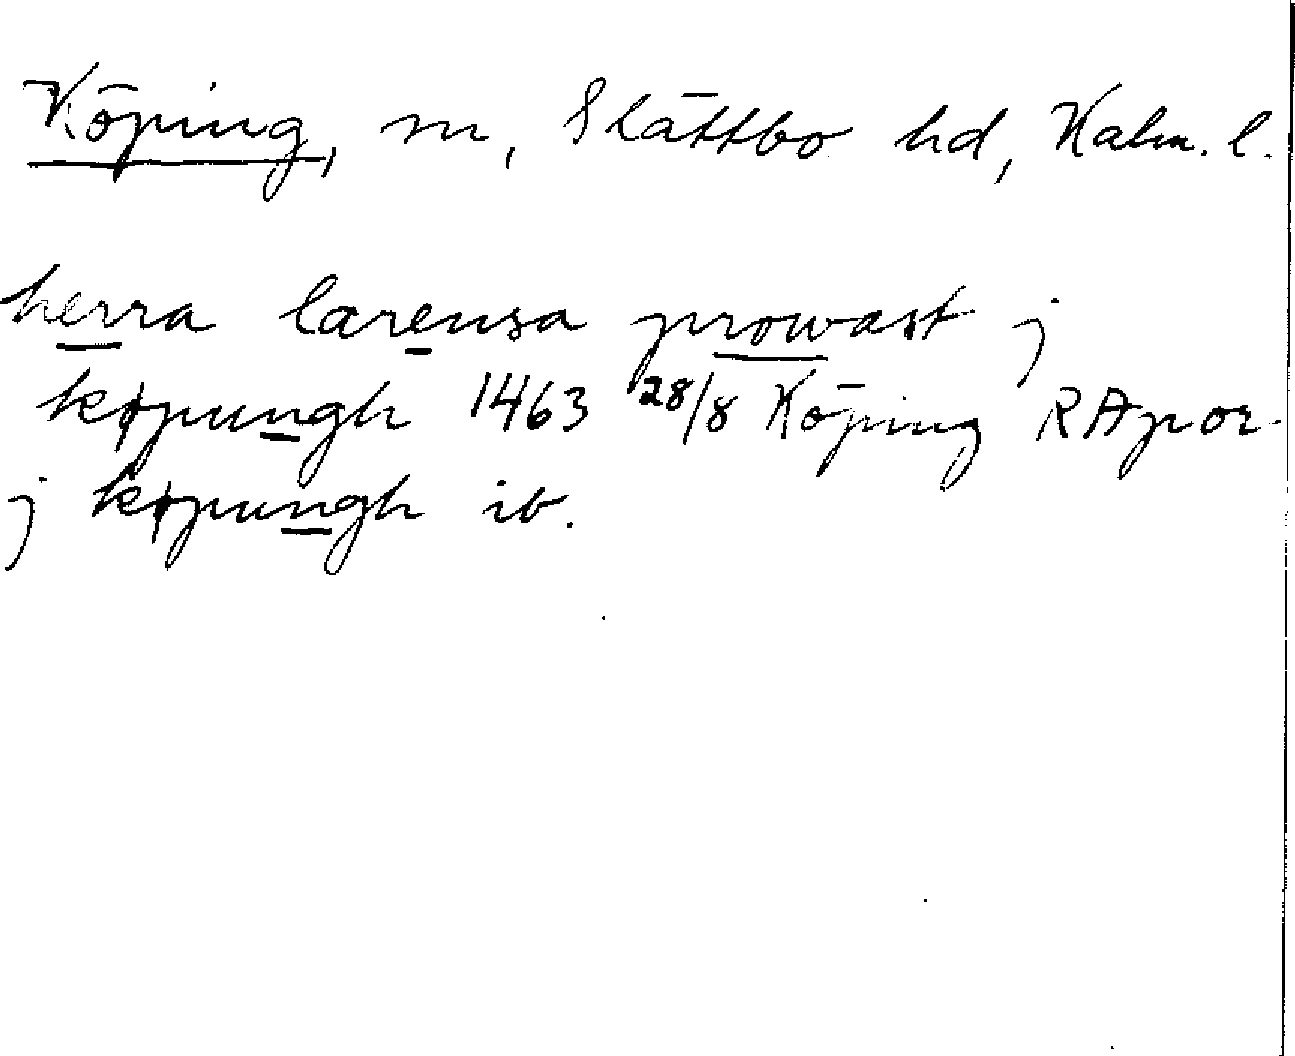 Köping, sn, Slättbo hd, Kalm. l.
herra larensa prowast j
køpungh 1463 28/8 Köping RApor
j køpungh ib.